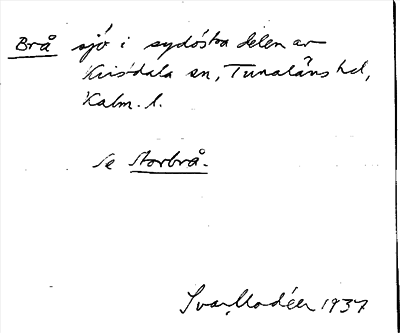 Brå sjö i sydöstra delen av
Kristdala sn, Tunaläns hd,
Kalm. l.
Se Storbrå.
Ivar Modéer 1937